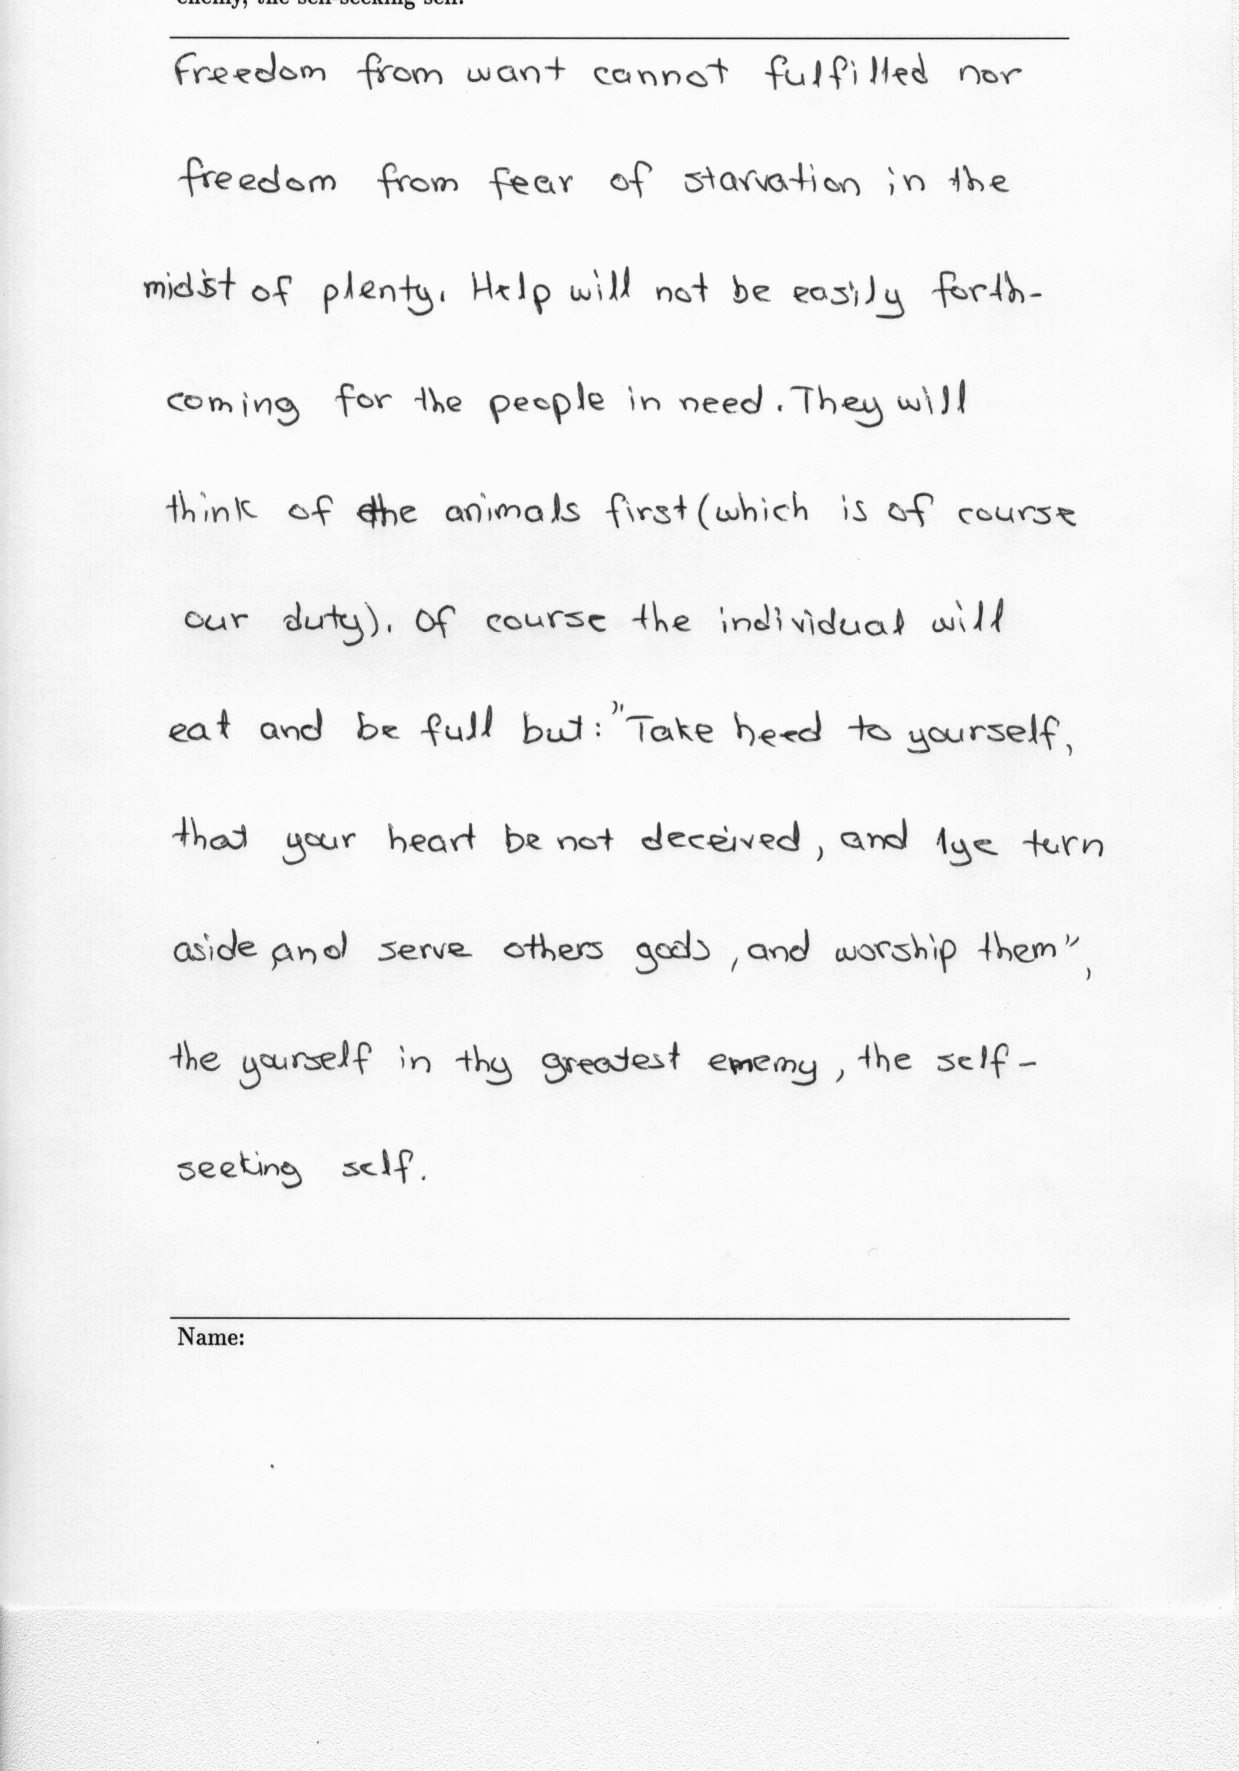 enemy, the self-seeking self.
Freedom from want cannot fulfilled nor
freedom from fear of starvation in the
midst of plenty. Help will not be easily forth-
coming for the people in need. They will
think of the animals first (which is of course
our duty). Of course the individual will
eat and be full but: "Take heed to yourself,
that your heart be not deceived, and 1ye turn
aside and serve others gods, and worship them",
the yourself in thy greatest ememy, the self-
seeking self.
Name: